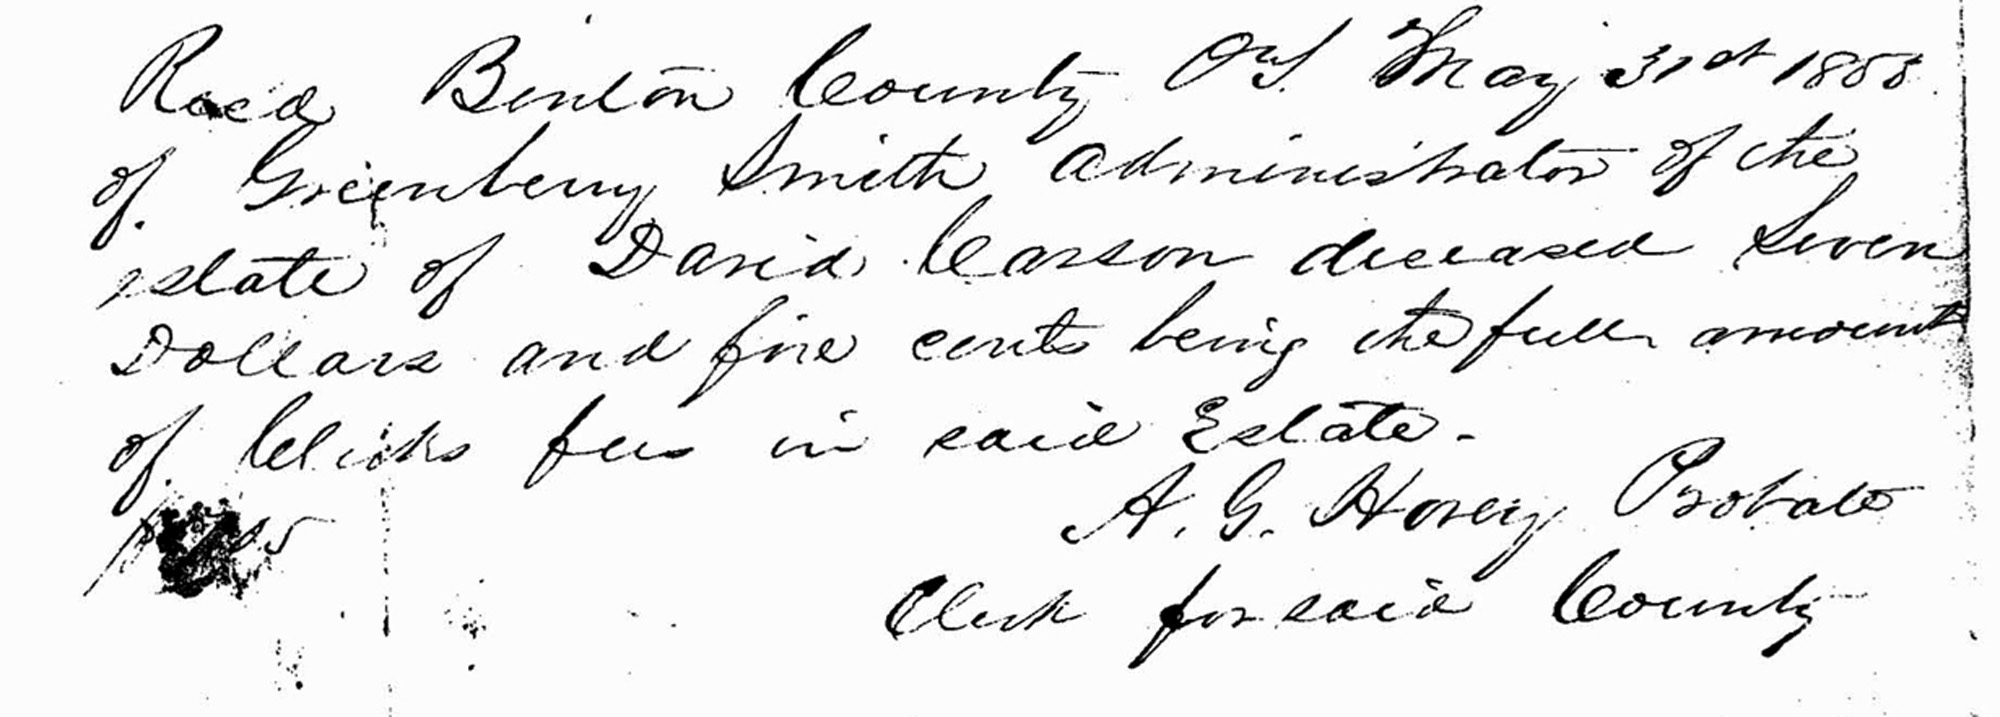 Recd Benton County O.T. May 31st 1855
of Greenberry Smith administrator of the
estate of David Carson deceased Seven
Dollars and five cents being the full amount
of Clerks fees in said Estate.
A. G. Hovey Probate
Clerk for said County